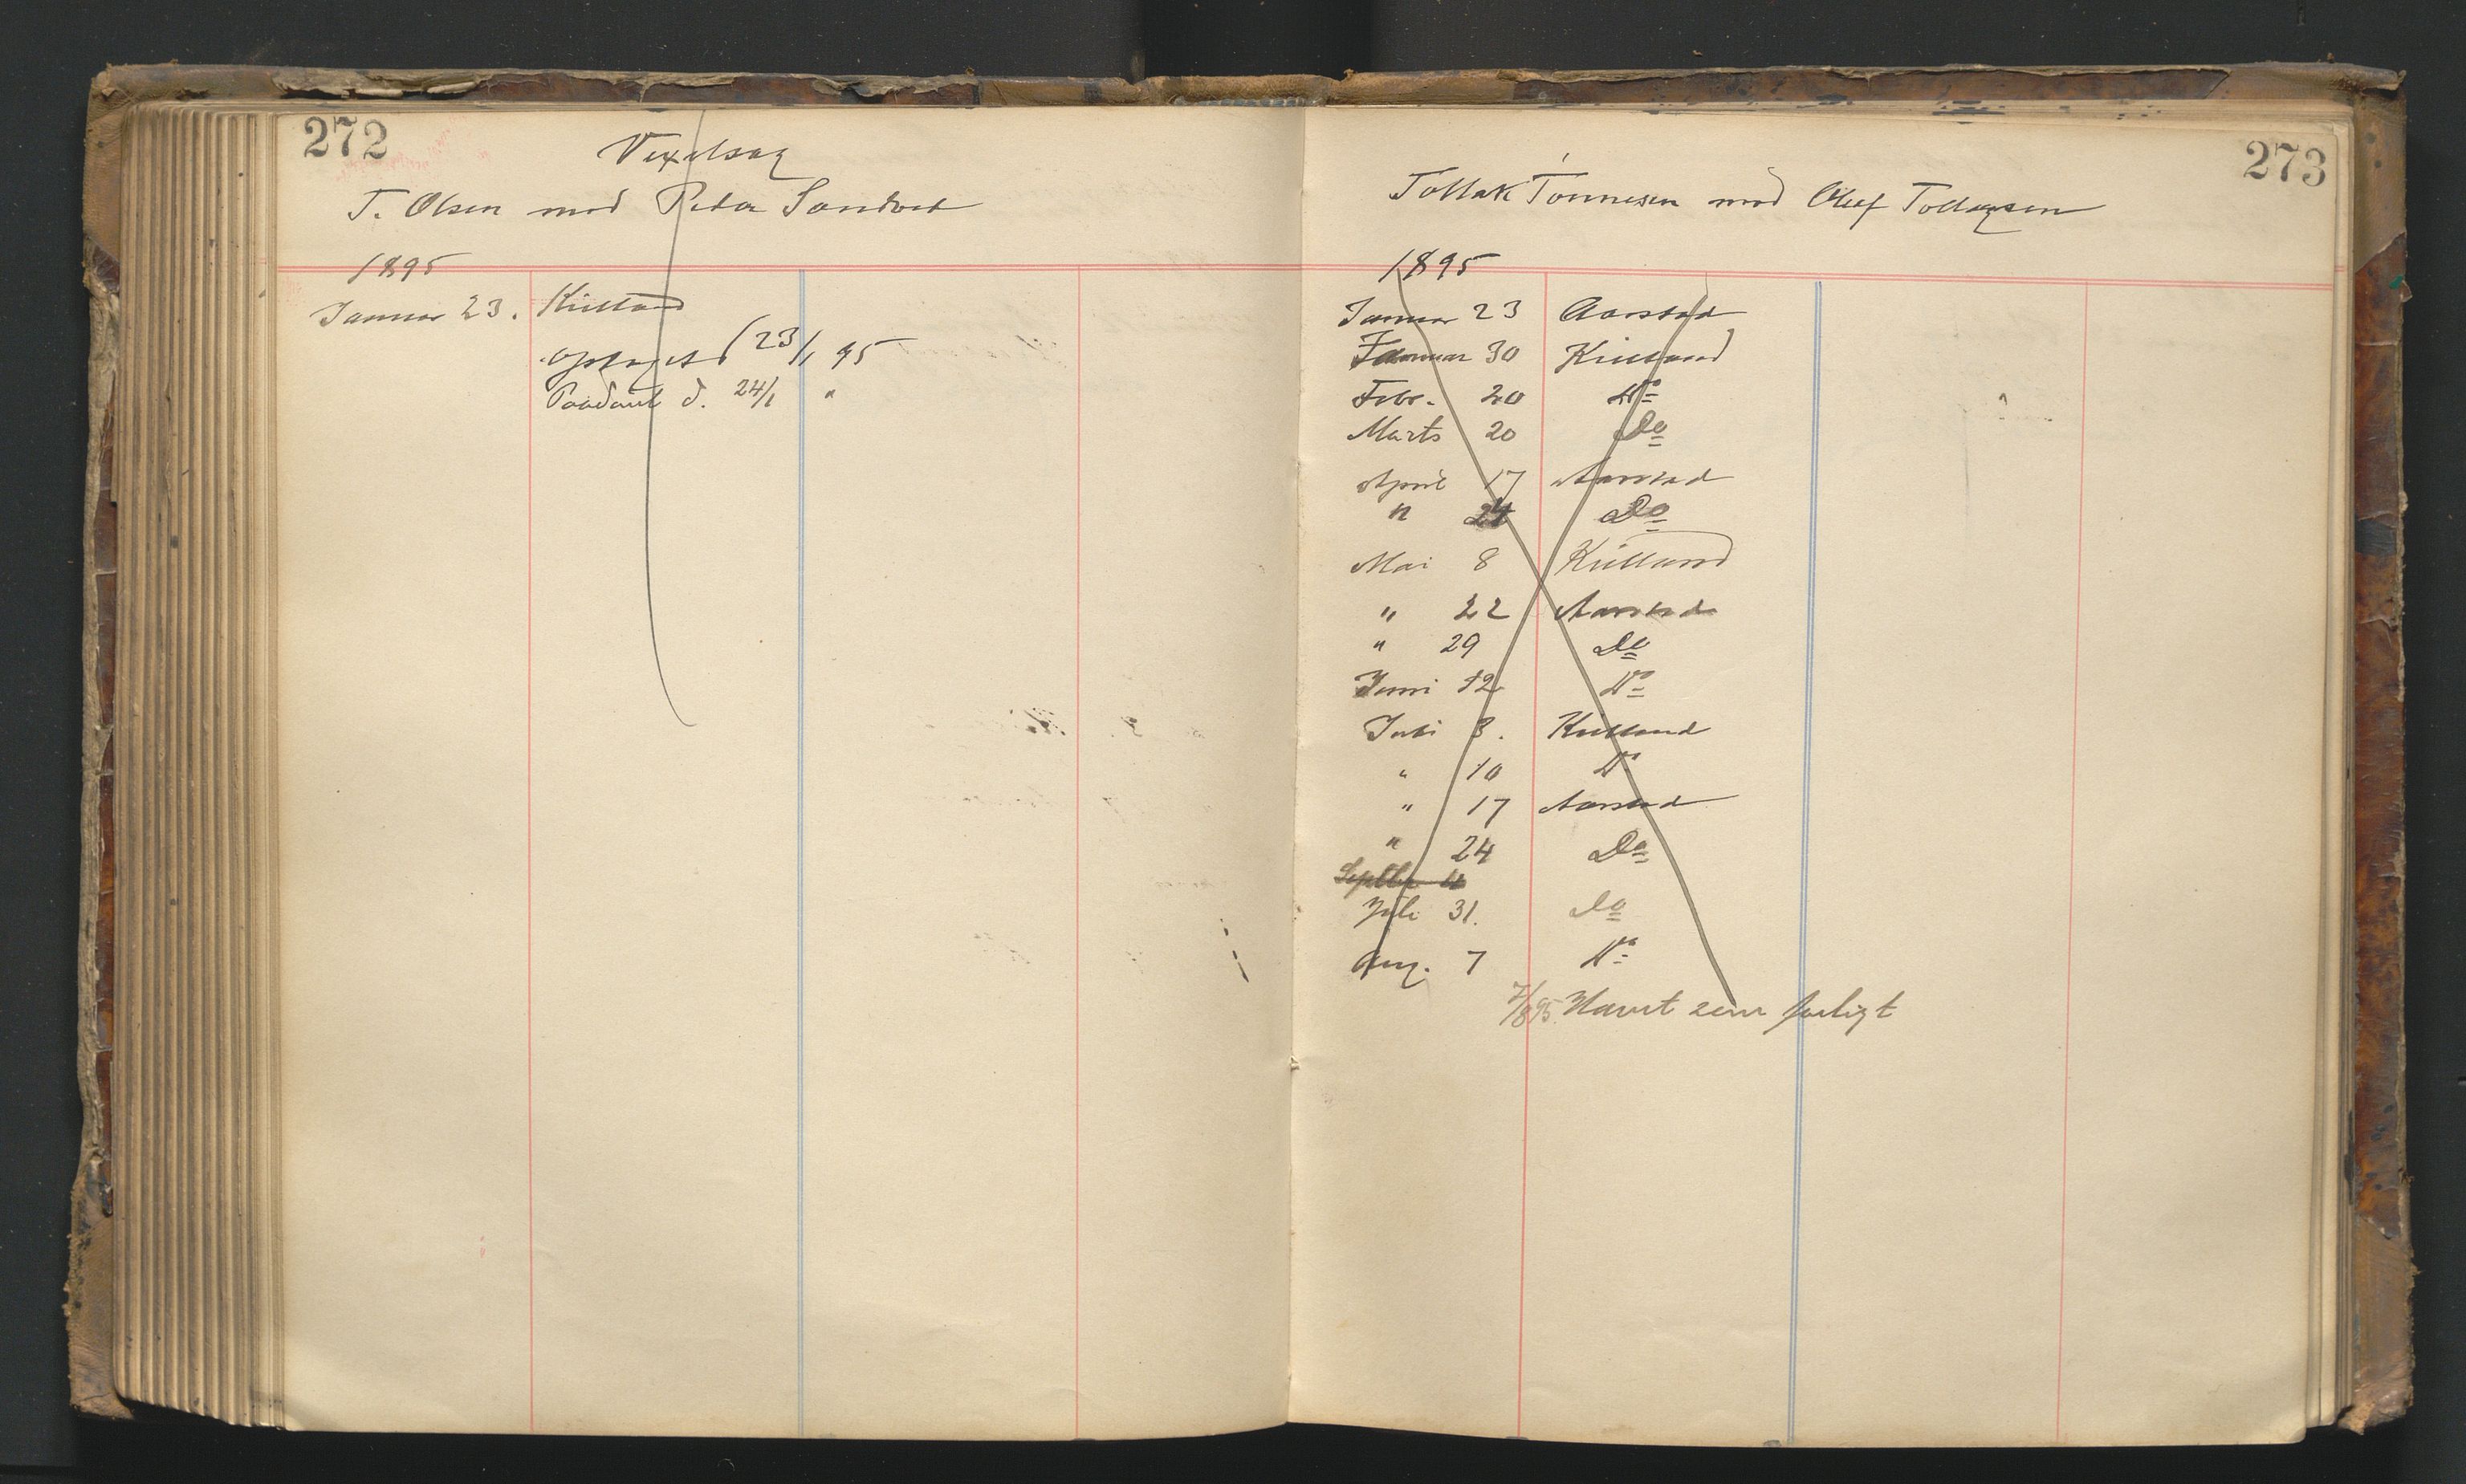 272
Vexelsag
T. Olsen mod Peder Sandved
1895
Januar 23. Kielland
Optaget d 23/1 95
Paadømt d. 24/1 "
273
Tollak Tønnesen mod Oluf Tollagsen
1895
Januar 23 Aarstad
Januar 30 Kielland
Febr. 20 Do
Marts 20 Do
April 17 Aarstad
" 24 Do
Mai 8 Kielland
" 22 Aarstad
" 29 Do
Juni 12 Do
Juli 3. Kielland
" 10 Do
" 17 Aarstad
" 24 Do
Septbr 4
Juli 31. Do
Aug. 7 Do
7/8 95. Hævet som forligt